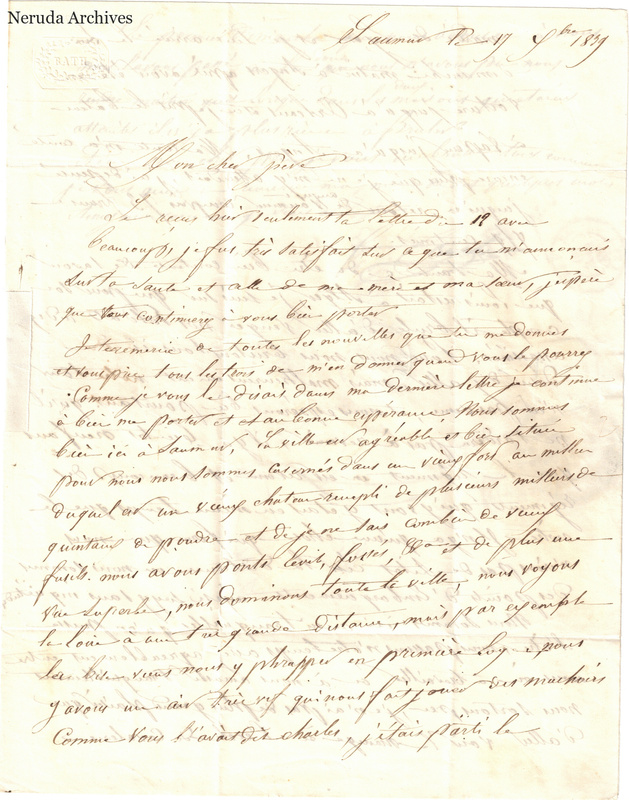 Neruda Archives
BATH
Saumur le 17 9bre 1839
Mon cher père
Je reçus hier seulement ta lettre du 12 avec
beaucoup je fus très satisfait sur ce que tu m'annonçais
sur ta santé et celle de ma mère et ma soeur, j'espère
que vous continuerez à vous bien porter
Je te remercie de toutes les nouvelles que tu me donnes
et vous prie tous les trois de m'en donner quand vous le pourrez
Comme je vous le disais dans ma dernière lettre je continue
à bien me porter et bonne espérance, Nous sommes
bien ici à Saumur, la ville est agréable et bien située
pour nous nous sommes casernés dans un vieux fort au milieu
duquel est un vieux chateau rempli de plusieurs milliers de
quintaux de poudre et de je ne sais combien de vieux
fusils. nous avons ponts levis, fossés, &a et de plus une
vue superbe, nous dominons toute la ville, nous voyons
la loire à une très grande distance, mais par exemple
la bise viens nous y phrapper en première nous
y avons un air très vif qui nous fait jouer des machoirs
Comme vous l'avait dit charles, j'étais parti le